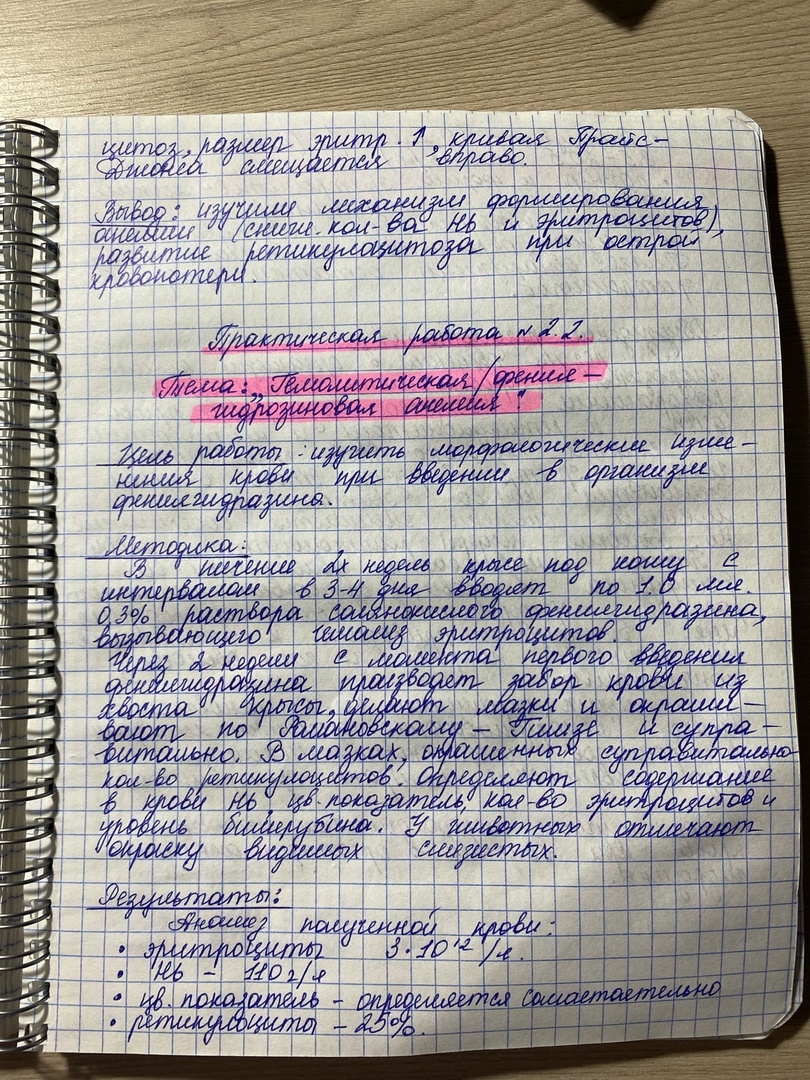 цитоз, размер эритр. ↑, кривая Прайс-
Джонса смещается вправо.
Вывод: изучили механизм формирования
анемии (сниж. кол-ва Hb и эритроцитов),
развитие ретикулоцитоза при острой
кровопотери.
Практическая работа № 2.2.
Тема: „Гемолитическая/фенил-
гидрозиновая анемия".
Цель работы: изучить морфологические изме-
нения крови при введении в организм
фенилгидразина.
Методика:
В течение 2х недель крысе под кожу с
интервалом в 3-4 дня вводят по 1.0 мл.
0,3% раствора солянокислого фенилгидразина,
вызывающего гемолиз эритроцитов
Через 2 недели с момента первого введения
фенилгидразина производят забор крови из
хвоста крысы, делают мазки и окраши-
вают по Романовскому - Гимзе и супра-
витально. В мазках, окрашенных суправитально
кол-во ретикулоцитов. Определяют содержание
в крови Hb, цв. показатель, кол-во эритроцитов и
уровень билирубина. У животных отмечают
окраску видимых слизистых.
Результаты:
Анализ полученной крови:
• эритроциты 3·10¹²/л.
• Hb - 110 г/л
• цв. показатель - определяется самостоятельно
• ретикулоциты - 25%.